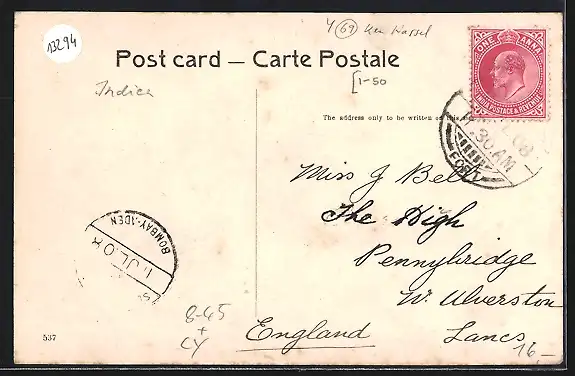 13294
Y (69)
Post card — Carte Postale
India
[1-50
ONE ANNA
INDIA POSTAGE & REVENUE
The address only to be written on this
08
.30 AM
FORT
Miss J Bell
The High
Pennybridge
Nr. Ulverston
Lancs
England
BOMBAY-ADEN
1.JL.08
8-45
+
CY
537
16,—